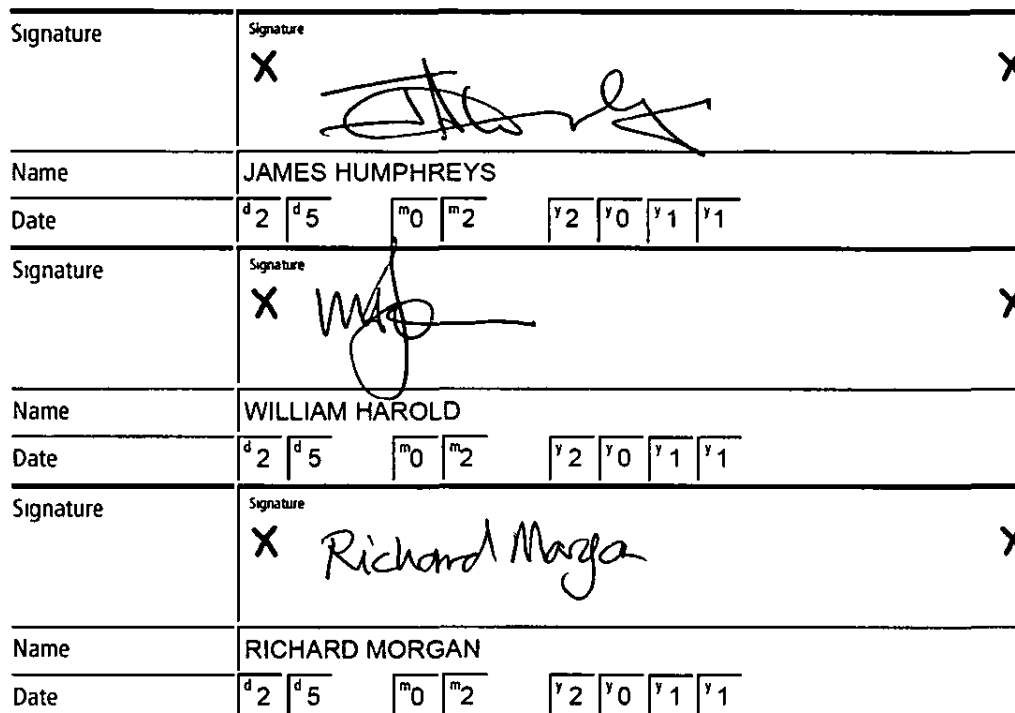 Signature Signature
X X
Name JAMES HUMPHREYS
Date d2 d5 m0 m2 y2 y0 y1 y1
Signature Signature
X X
Name WILLIAM HAROLD
Date d2 d5 m0 m2 y2 y0 y1 y1
Signature Signature
X Richard Morgan X
Name RICHARD MORGAN
Date d2 d5 m0 m2 y2 y0 y1 y1